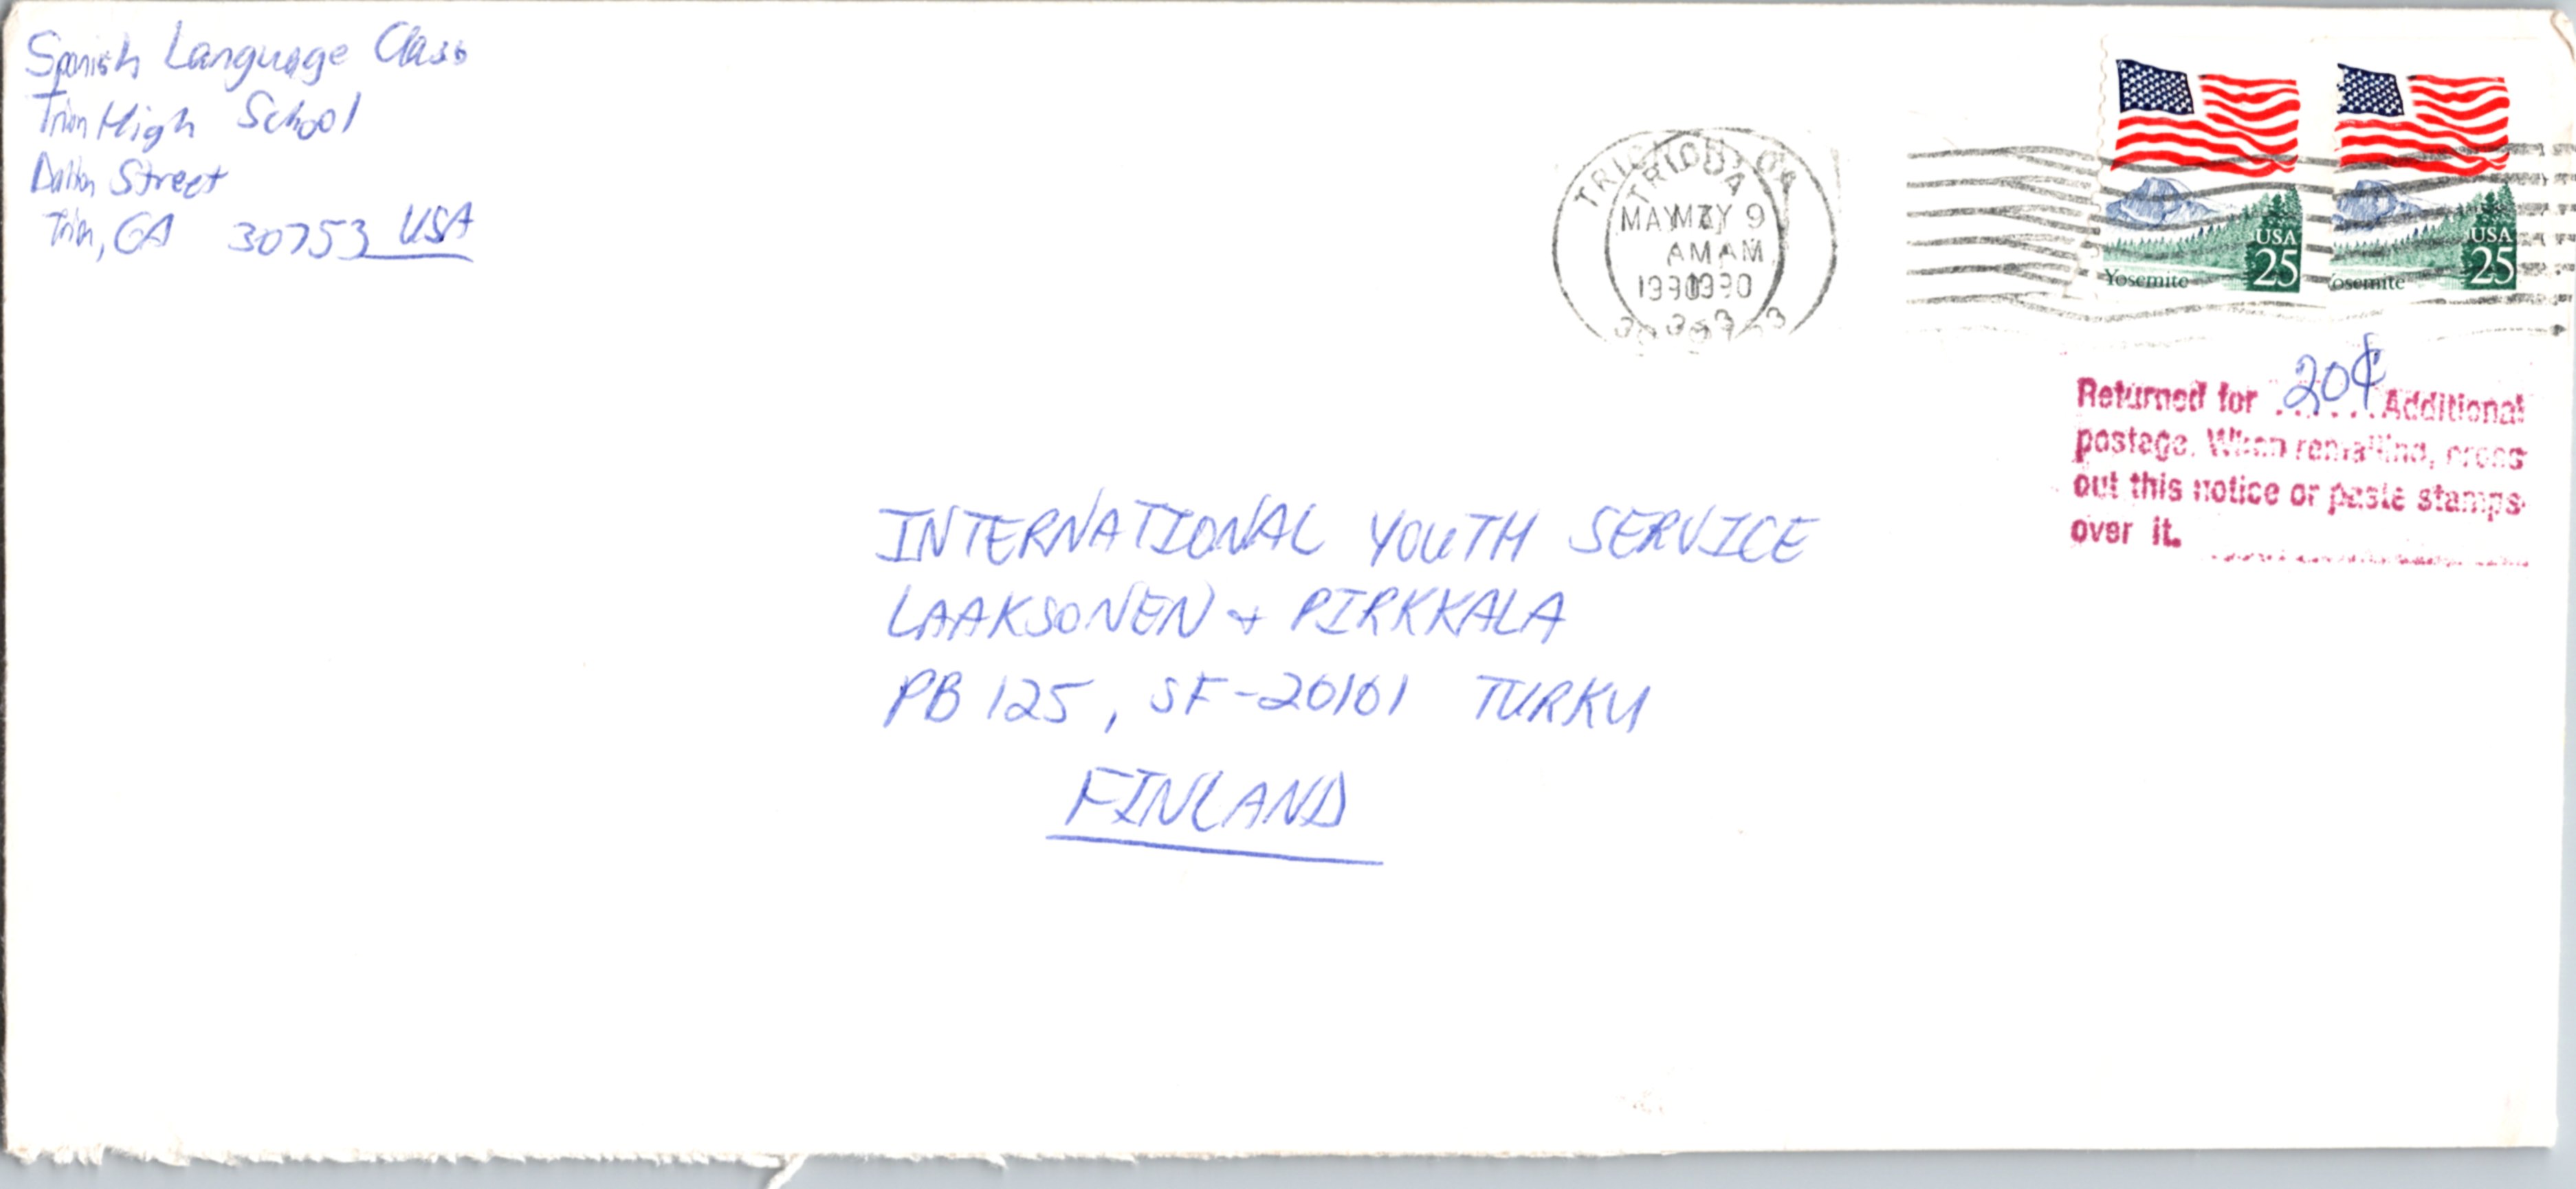 Spanish Language Class
Trion High School
Dalton Street
Trion, GA 30753 USA
MAY MAY 9
AM AM
1990 1990
USA
25
Yosemite
USA
25
osemite
Returned for 20¢ Additional
postage. When remailing, cross
out this notice or paste stamps
over it.
INTERNATIONAL YOUTH SERVICE
LAAKSONEN + PIRKKALA
PB 125, SF-20101 TURKU
FINLAND